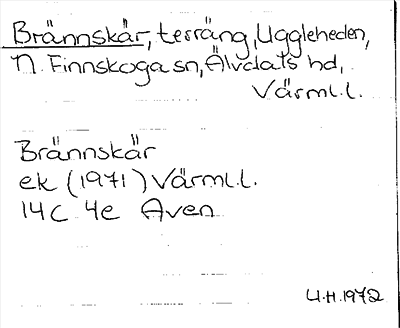 Brännskär, terräng, Uggleheden,
N. Finnskoga sn, Älvdals hd,
Värml.l.
Brännskär
ek (1971) Värml.l.
14c 4e Aven
U.H. 1972